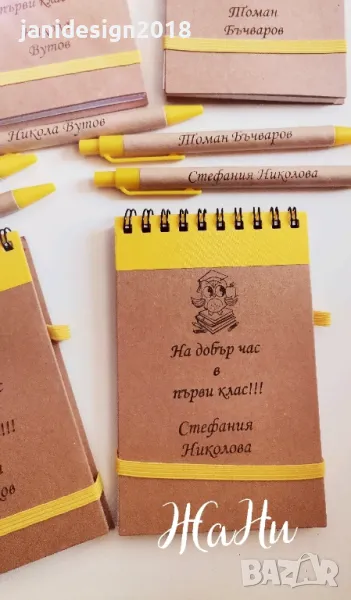 janidesign2018
първи клас
Вутов
Томан
Бъчваров
Никола Вутов
Томан Бъчваров
Стефания Николова
На добър час
в
първи клас!!!
Стефания
Николова
!!!
ов
ЖаНи
BAZAR